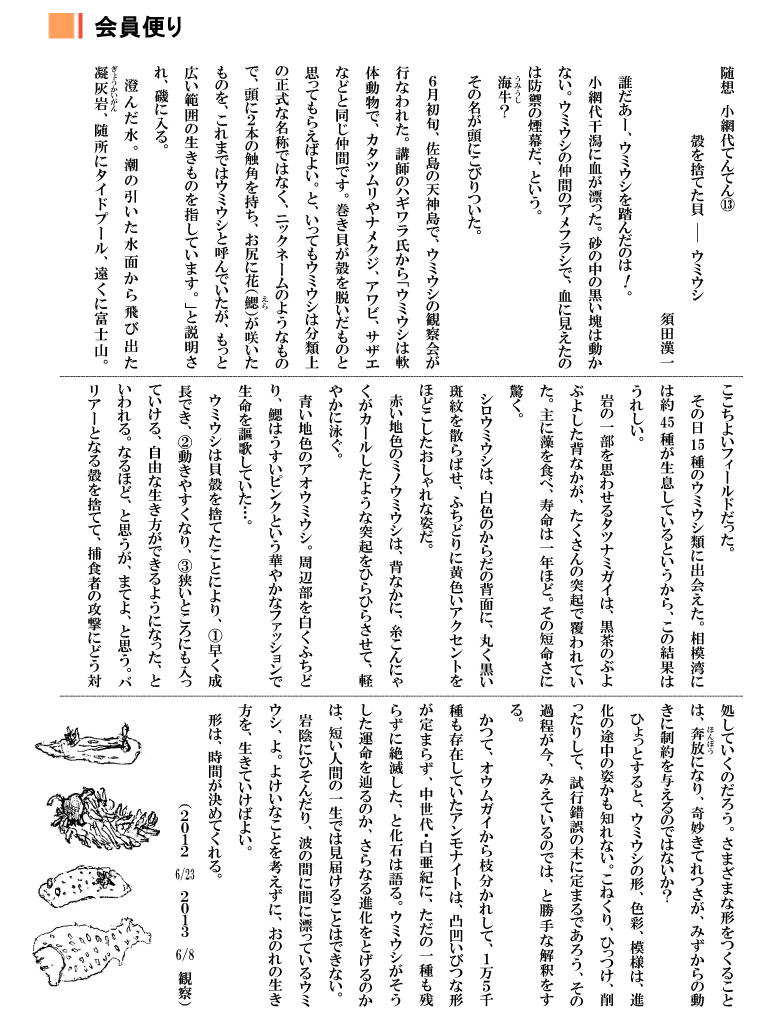 会員便り
随想　小網代てんてん⑬
殻を捨てた貝 ― ウミウシ
須田漢一
誰だあー、ウミウシを踏んだのは！。
小網代干潟に血が漂った。砂の中の黒い塊は動か
ない。ウミウシの仲間のアメフラシで、血に見えたの
は防禦の煙幕だ、という。
海牛？
うみうし
その名が頭にこびりついた。
6月初旬、佐島の天神島で、ウミウシの観察会が
行なわれた。講師のハギワラ氏から「ウミウシは軟
体動物で、カタツムリやナメクジ、アワビ、サザエ
などと同じ仲間です。巻き貝が殻を脱いだものと
思ってもらえばよい。と、いってもウミウシは分類上
の正式な名称ではなく、ニックネームのようなもの
で、頭に2本の触角を持ち、お尻に花（鰓）が咲いた
えら
ものを、これまではウミウシと呼んでいたが、もっと
広い範囲の生きものを指しています。」と説明さ
れ、磯に入る。
澄んだ水。潮の引いた水面から飛び出た
凝灰岩、随所にタイドプール、遠くに富士山。
ぎょうかいがん
ここちよいフィールドだった。
その日15種のウミウシ類に出会えた。相模湾に
は約45種が生息しているというから、この結果は
うれしい。
岩の一部を思わせるタツナミガイは、黒茶のぶよ
ぶよした背なかが、たくさんの突起で覆われてい
た。主に藻を食べ、寿命は一年ほど。その短命さに
驚く。
シロウミウシは、白色のからだの背面に、丸く黒い
斑紋を散らばせ、ふちどりに黄色いアクセントを
ほどこしたおしゃれな姿だ。
赤い地色のミノウミウシは、背なかに、糸こんにゃ
くがカールしたような突起をひらひらさせて、軽
やかに泳ぐ。
青い地色のアオウミウシ。周辺部を白くふちど
り、鰓はうすいピンクという華やかなファッションで
生命を謳歌していた…。
ウミウシは貝殻を捨てたことにより、①早く成
長でき、②動きやすくなり、③狭いところにも入っ
ていける、自由な生き方ができるようになった、と
いわれる。なるほど、と思うが、まてよ、と思う。バ
リアーとなる殻を捨てて、捕食者の攻撃にどう対
処していくのだろう。さまざまな形をつくること
は、奔放になり、奇妙きてれつさが、みずからの動
ほんぽう
きに制約を与えるのではないか？
ひょっとすると、ウミウシの形、色彩、模様は、進
化の途中の姿かも知れない。こねくり、ひっつけ、削
ったりして、試行錯誤の末に定まるであろう、その
過程が今、みえているのでは、と勝手な解釈をす
る。
かつて、オウムガイから枝分かれして、1万5千
種も存在していたアンモナイトは、凸凹いびつな形
が定まらず、中世代・白亜紀に、ただの一種も残
らずに絶滅した、と化石は語る。ウミウシがそう
した運命を辿るのか、さらなる進化をとげるのか
は、短い人間の一生では見届けることはできない。
岩陰にひそんだり、波の間に間に漂っているウミ
ウシ、よ。よけいなことを考えずに、おのれの生き
方を、生きていけばよい。
形は、時間が決めてくれる。
（2012 6/23 2013 6/8 観察）